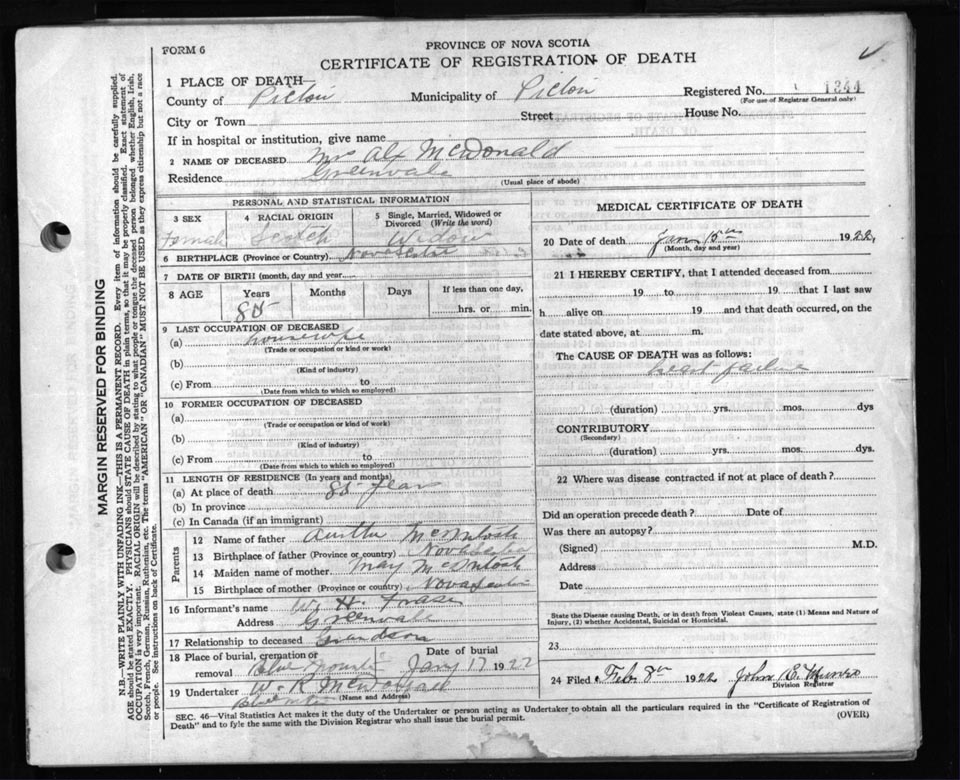 FORM 6
PROVINCE OF NOVA SCOTIA
CERTIFICATE OF REGISTRATION OF DEATH
1 PLACE OF DEATH—
County of Pictou Municipality of Pictou Registered No. 1344
(For use of Registrar General only)
City or Town Street House No.
If in hospital or institution, give name
2 NAME OF DECEASED Mrs Alx McDonald
Residence Greenvale
(Usual place of abode)
PERSONAL AND STATISTICAL INFORMATION
3 SEX 4 RACIAL ORIGIN 5 Single, Married, Widowed or Divorced (Write the word)
Female Scotch Widow
6 BIRTHPLACE (Province or Country) Nova Scotia
7 DATE OF BIRTH (month, day and year)
8 AGE Years Months Days If less than one day,
85 hrs. or min.
9 LAST OCCUPATION OF DECEASED
(a) housewife
(Trade or occupation or kind or work)
(b)
(Kind of industry)
(c) From to
(Date from which to which so employed)
10 FORMER OCCUPATION OF DECEASED
(a)
(Trade or occupation or kind of work)
(b)
(Kind of industry)
(c) From to
(Date from which to which so employed)
11 LENGTH OF RESIDENCE (In years and months)
(a) At place of death 85 years
(b) In province
(c) In Canada (if an immigrant)
Parents
12 Name of father McIntosh
13 Birthplace of father (Province or country) Nova Scotia
14 Maiden name of mother May McIntosh
15 Birthplace of mother (Province or country) Nova Scotia
16 Informant's name W. H. Fraser
Address Greenvale
17 Relationship to deceased Grandson
18 Place of burial, cremation or Date of burial
removal Blue Mountain Jany 17 1922
19 Undertaker W. R McDonald
(Name and Address)
Blue Mtn
MEDICAL CERTIFICATE OF DEATH
20 Date of death Jan 15th 1922
(Month, day and year)
21 I HEREBY CERTIFY, that I attended deceased from
19 to 19 that I last saw
h alive on 19 and that death occurred, on the
date stated above, at m.
The CAUSE OF DEATH was as follows:
heart failure
(duration) yrs. mos. dys
CONTRIBUTORY
(Secondary)
(duration) yrs. mos. dys.
22 Where was disease contracted if not at place of death?
Did an operation precede death? Date of
Was there an autopsy?
(Signed) M.D.
Address
Date
State the Disease causing Death, or in death from Violent Causes, state (1) Means and Nature of
Injury, (2) whether Accidental, Suicidal or Homicidal.
23
24 Filed Feb 8th 1922 John B. Munro
Division Registrar
SEC. 46—Vital Statistics Act makes it the duty of the Undertaker or person acting as Undertaker to obtain all the particulars required in the "Certificate of Registration of
Death" and to fyle the same with the Division Registrar who shall issue the burial permit. (OVER)
MARGIN RESERVED FOR BINDING
N.B.—WRITE PLAINLY WITH UNFADING INK—THIS IS A PERMANENT RECORD. Every item of information should be carefully supplied.
AGE should be stated EXACTLY. PHYSICIANS should STATE CAUSE OF DEATH in plain terms, so that it may be properly classified. Exact statement of
OCCUPATION is very important. RACIAL ORIGIN will be described by stating to what people or tongue the deceased person belonged whether English, Irish,
Scotch, French, German, Russian, Ruthenian, etc. The terms "AMERICAN" OR "CANADIAN" MUST NOT BE USED as they express citizenship but not a race
or people. See instructions on back of Certificate.